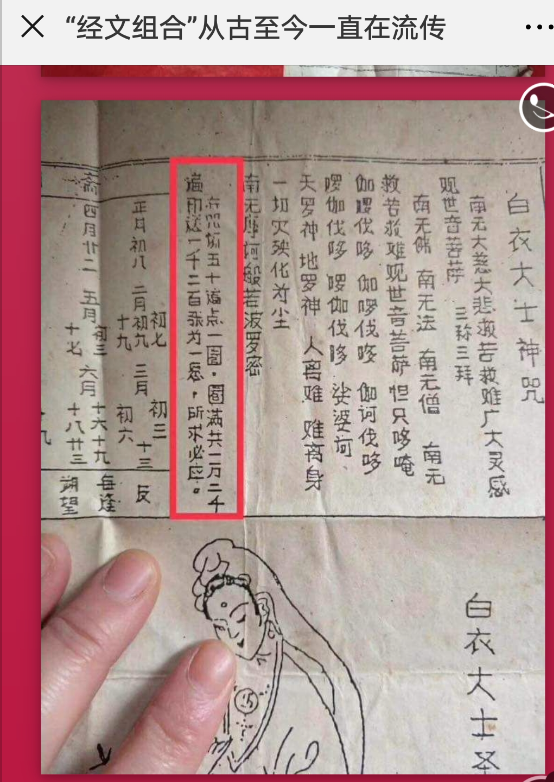 “经文组合”从古至今一直在流传
白衣大士神咒
南无大慈大悲救苦救难广大灵感
观世音菩萨 三称三拜
南无佛 南无法 南无僧 南无
救苦救难观世音菩萨 怛只哆唵
伽啰伐哆 伽啰伐哆 伽诃伐哆
啰伽伐哆 啰伽伐哆 娑婆诃
天罗神 地罗神 人离难 难离身
一切灾殃化为尘
南无摩诃般若波罗密
五十遍点一圈，圈满共一万二千
遍印送一千二百张为一愿，所求必应。
正月初八 二月初七 初九 十九 三月初三 初六 十三 反
斋 四月廿二 五月初三 十七 六月十六 十八 十九 廿三 每逢 朔望
白衣大士圣